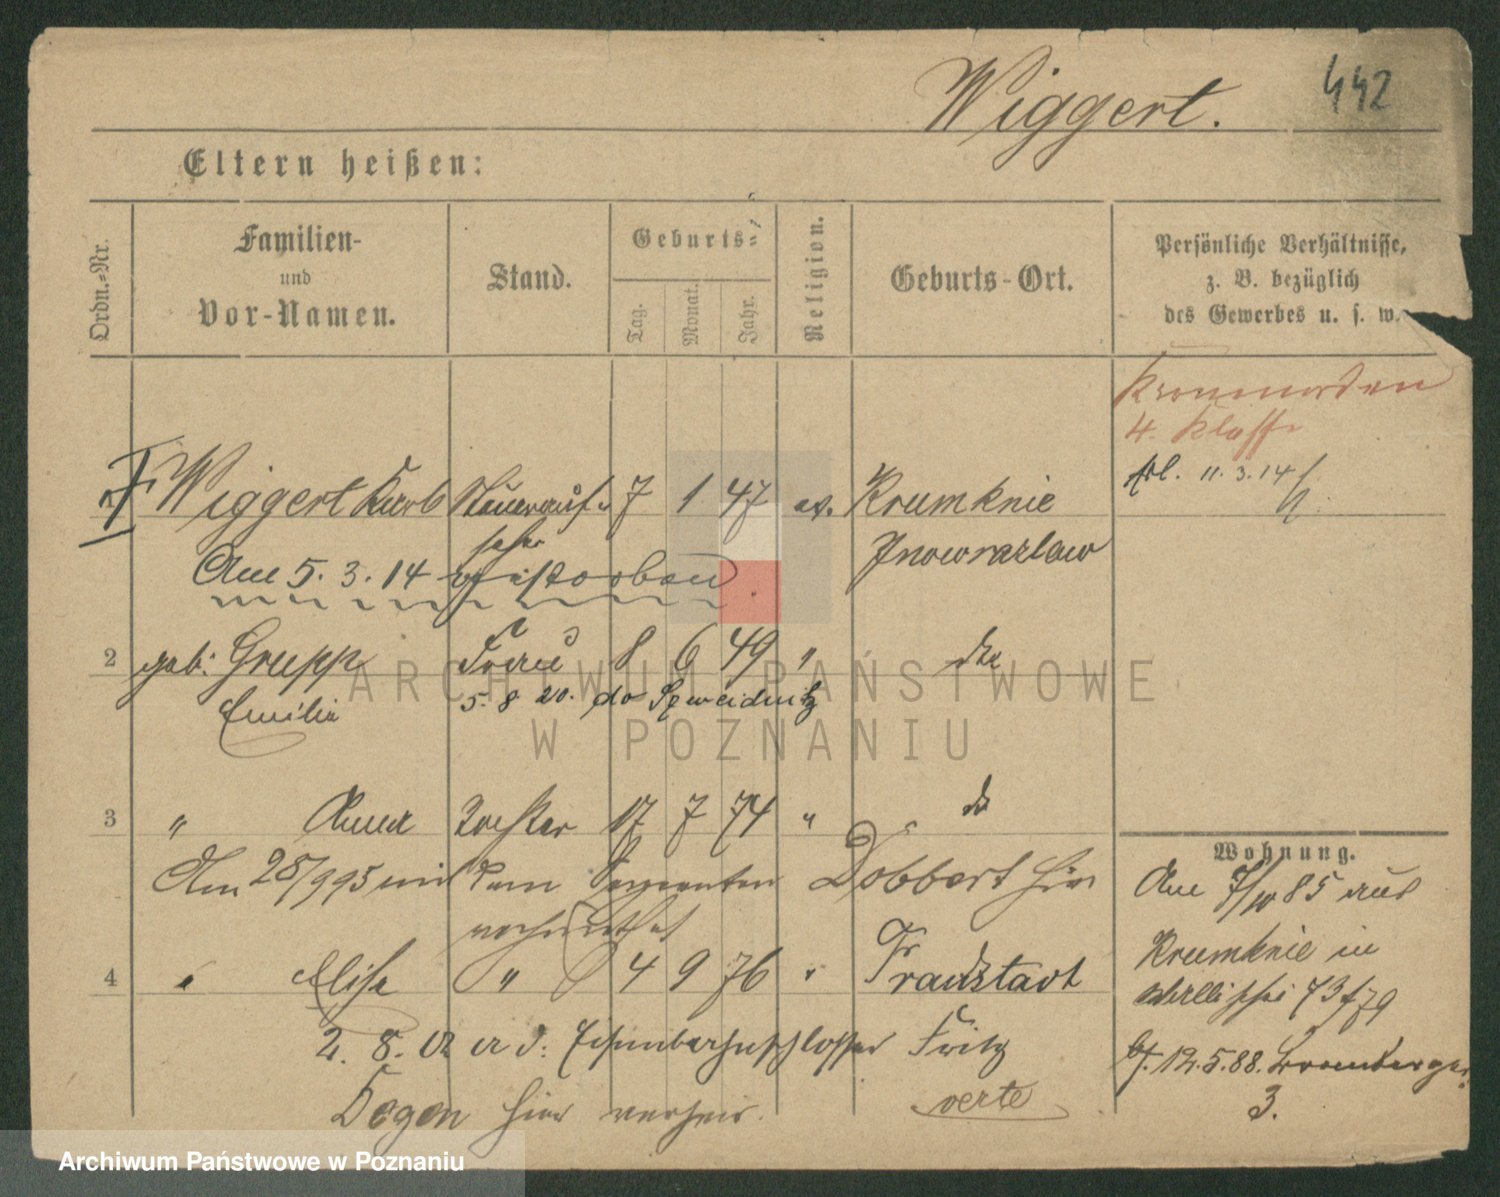 Wiggert.
442
Eltern heißen:
Ordn.-Nr.
Familien-
und
Vor-Namen.
Stand.
Geburts-
Tag.
Monat.
Jahr.
Religion.
Geburts-Ort.
Persönliche Verhältnisse,
z. B. bezüglich
des Gewerbes u. s. w.
Kronenorden
4. Klasse
11.3.14
1 Wiggert Karl Steuerauf- 7 1 47 ev. Krumknie
seher Inowrazlaw
Am 5.3.14 verstorben.
2 geb: Grupp Frau 8 6 49 " do
Emilie 5. 8 20. do Schweidnitz
3 " Anna Tochter 17 7 74 " do
Am 28/9 95 mit dem Dobbert hier
verheirathet
4 " Elise " 4 9 76 " Fraustadt
2. 8. 02 a. d. Eisenbahnschlosser Fritz
Degen hier verheir.
verte
Wohnung.
Am 7/10 85 aus
Krumknie in
Wallischei 73 f 79
12.5.88. Bromberger
3.
ARCHIWUM PAŃSTWOWE
W POZNANIU
Archiwum Państwowe w Poznaniu